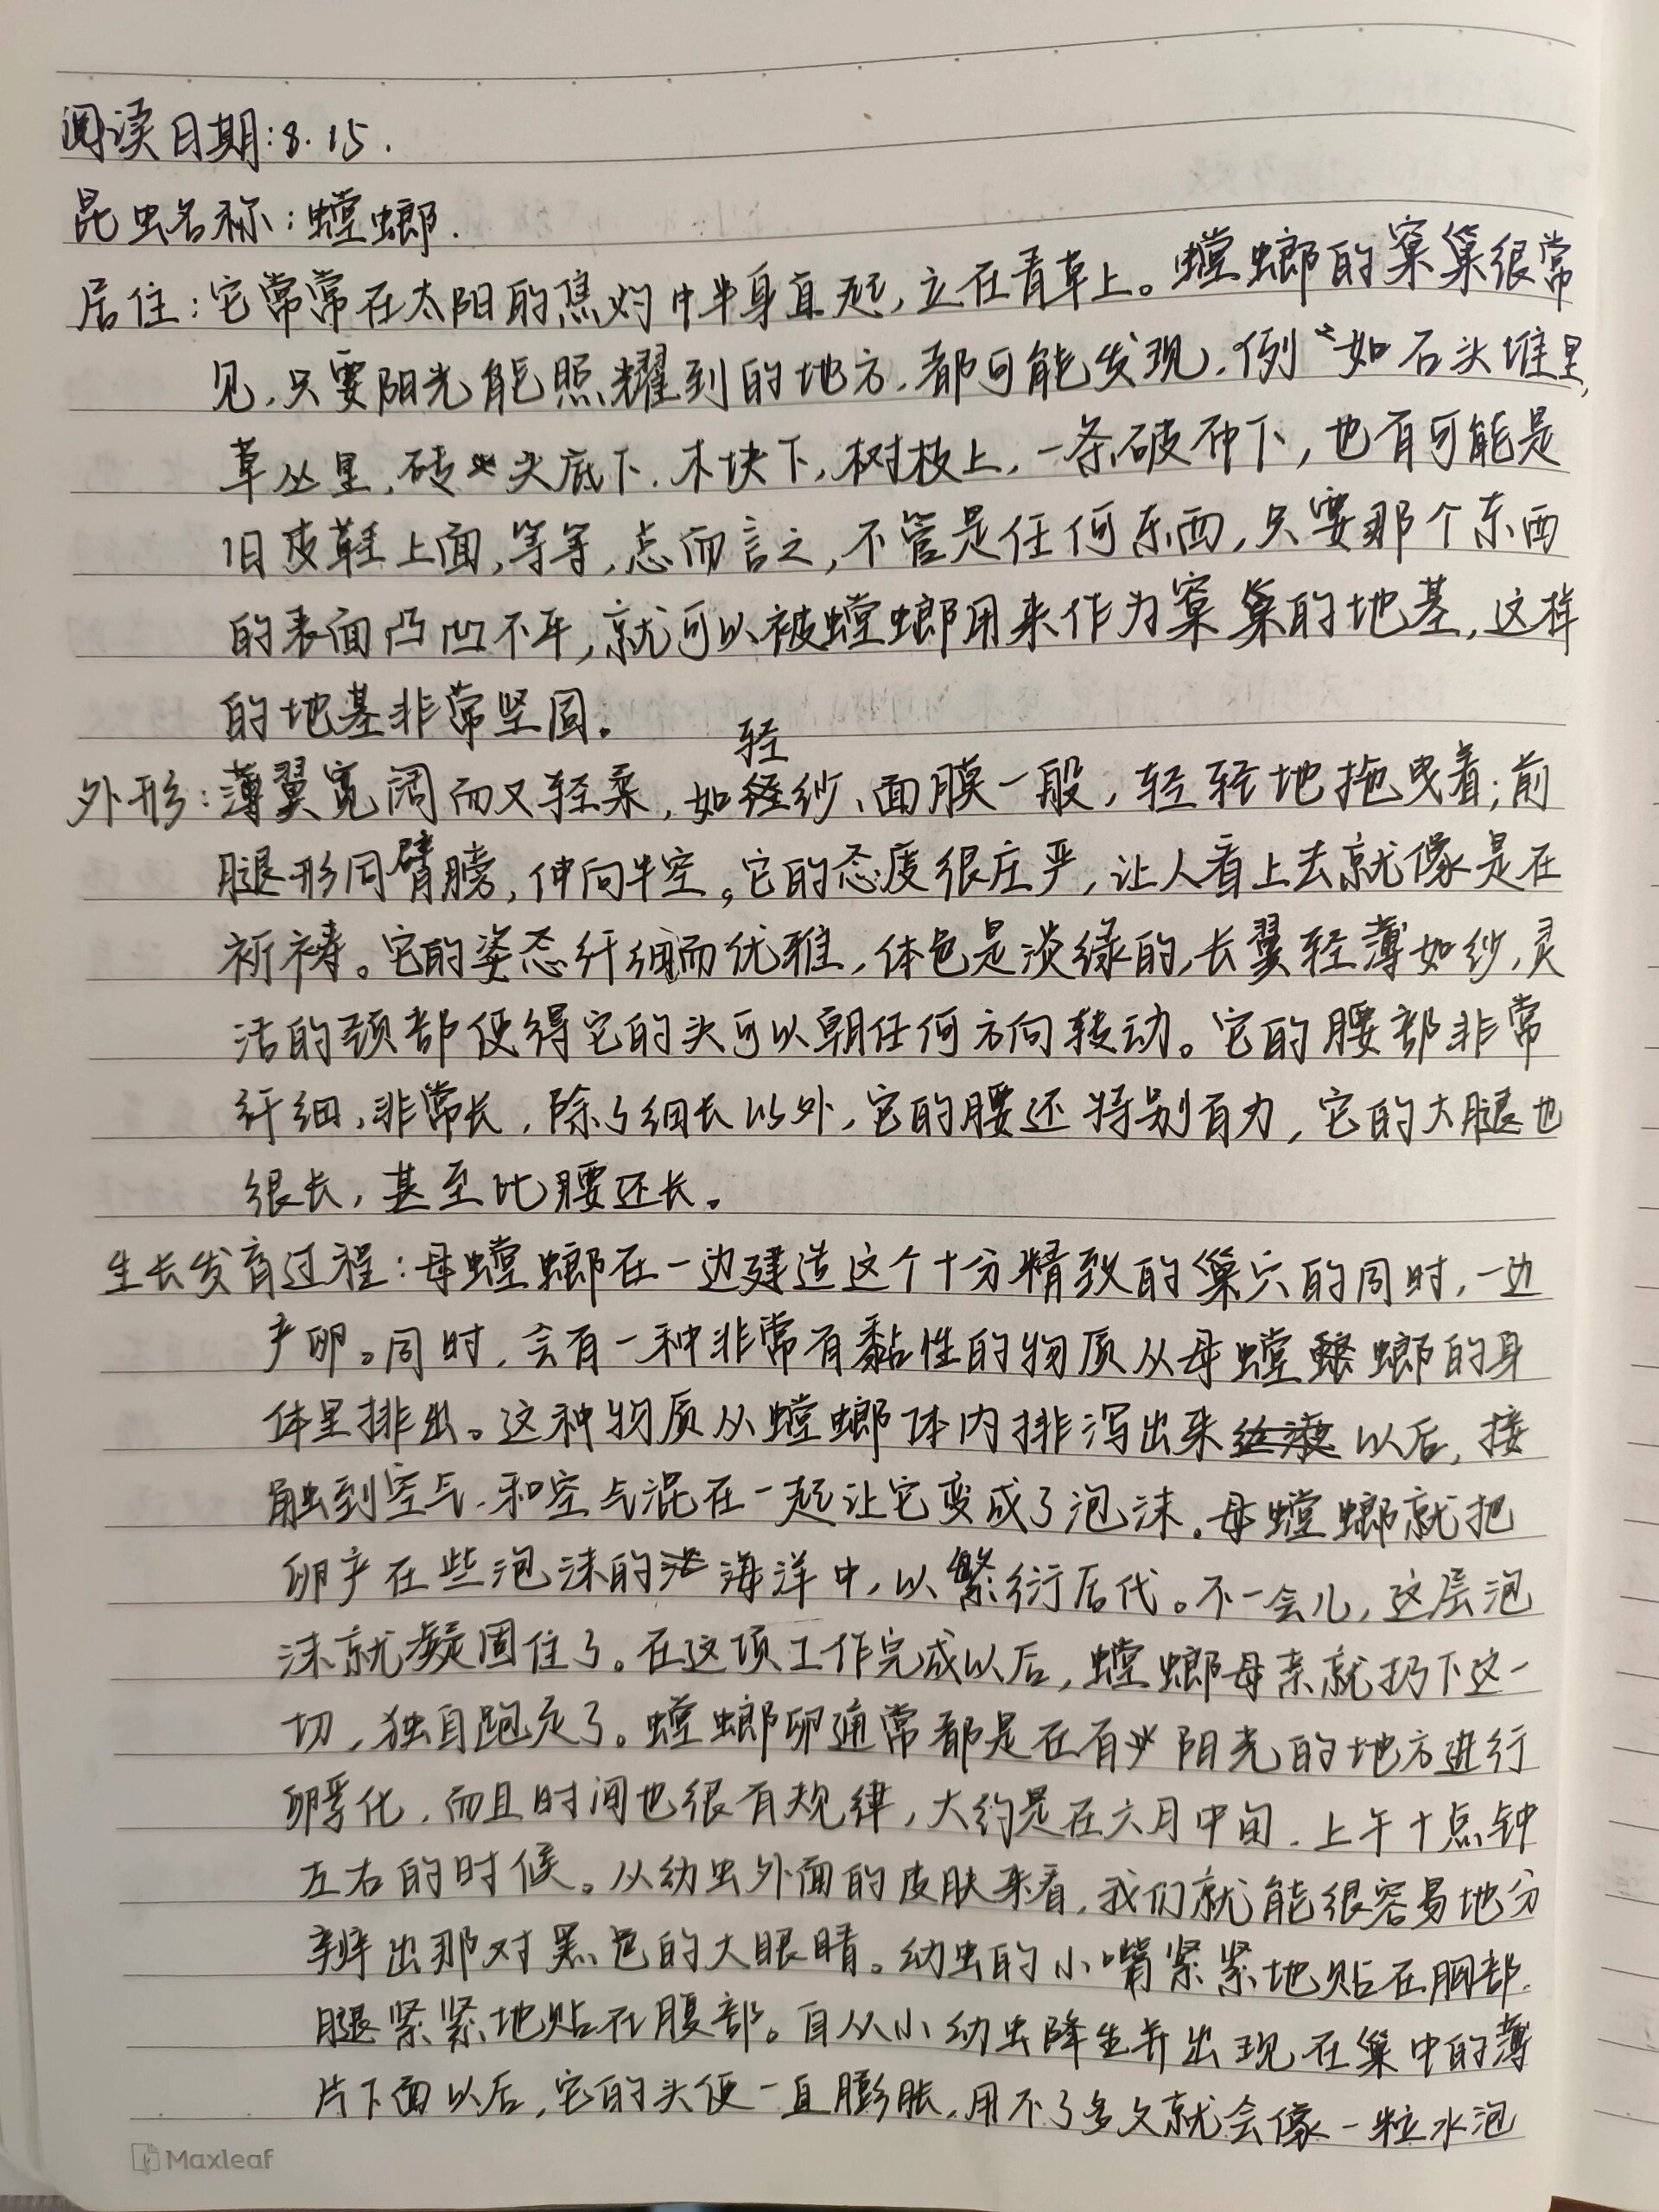 阅读日期:8.15.
昆虫名称:螳螂.
居住:它常常在太阳的焦灼中半身直起,立在青草上。螳螂的窠巢很常
见,只要阳光能照耀到的地方,都可能发现,例如石头堆里,
草丛里,砖头底下,木块下,树枝上,一条破布下,也有可能是
旧皮鞋上面,等等,总而言之,不管是任何东西,只要那个东西
的表面凸凹不平,就可以被螳螂用来作为窠巢的地基,这样
的地基非常坚固。
外形:薄翼宽阔而又轻柔,如轻纱、面膜一般,轻轻地拖曳着;前
腿形同臂膀,伸向半空。它的态度很庄严,让人看上去就像是在
祈祷。它的姿态纤细而优雅,体色是淡绿的,长翼轻薄如纱,灵
活的颈部使得它的头可以朝任何方向转动。它的腰部非常
纤细,非常长,除了细长以外,它的腰还特别有力,它的大腿也
很长,甚至比腰还长。
生长发育过程:母螳螂在一边建造这个十分精致的巢穴的同时,一边
产卵。同时,会有一种非常有黏性的物质从母螳螂的身
体里排出。这种物质从螳螂体内排泻出来以后,接
触到空气,和空气混在一起让它变成了泡沫。母螳螂就把
卵产在些泡沫的海洋中,以繁衍后代。不一会儿,这层泡
沫就凝固住了。在这项工作完成以后,螳螂母亲就扔下这一
切,独自跑走了。螳螂卵通常都是在有阳光的地方进行
孵化,而且时间也很有规律,大约是在六月中旬,上午十点钟
左右的时候。从幼虫外面的皮肤来看,我们就能很容易地分
辨出那对黑色的大眼睛。幼虫的小嘴紧紧地贴在胸部,
腿紧紧地贴在腹部。自从小幼虫降生并出现在巢中的薄
片下面以后,它的头便一直膨胀,用不了多久就会像一粒水泡
Maxleaf